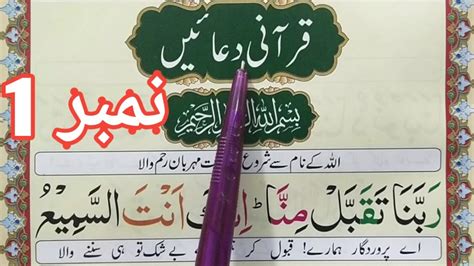 قرآنی دعائیں
نمبر 1
بسم اللہ الرحیم
اللہ کے نام سے شروع مہربان رحم والا
رَبَّنَا تَقَبَّلْ مِنَّا ط اَنْتَ السَّمِیْعُ
اے پروردگار ہمارے! قبول کر بے شک تو ہی سننے والا